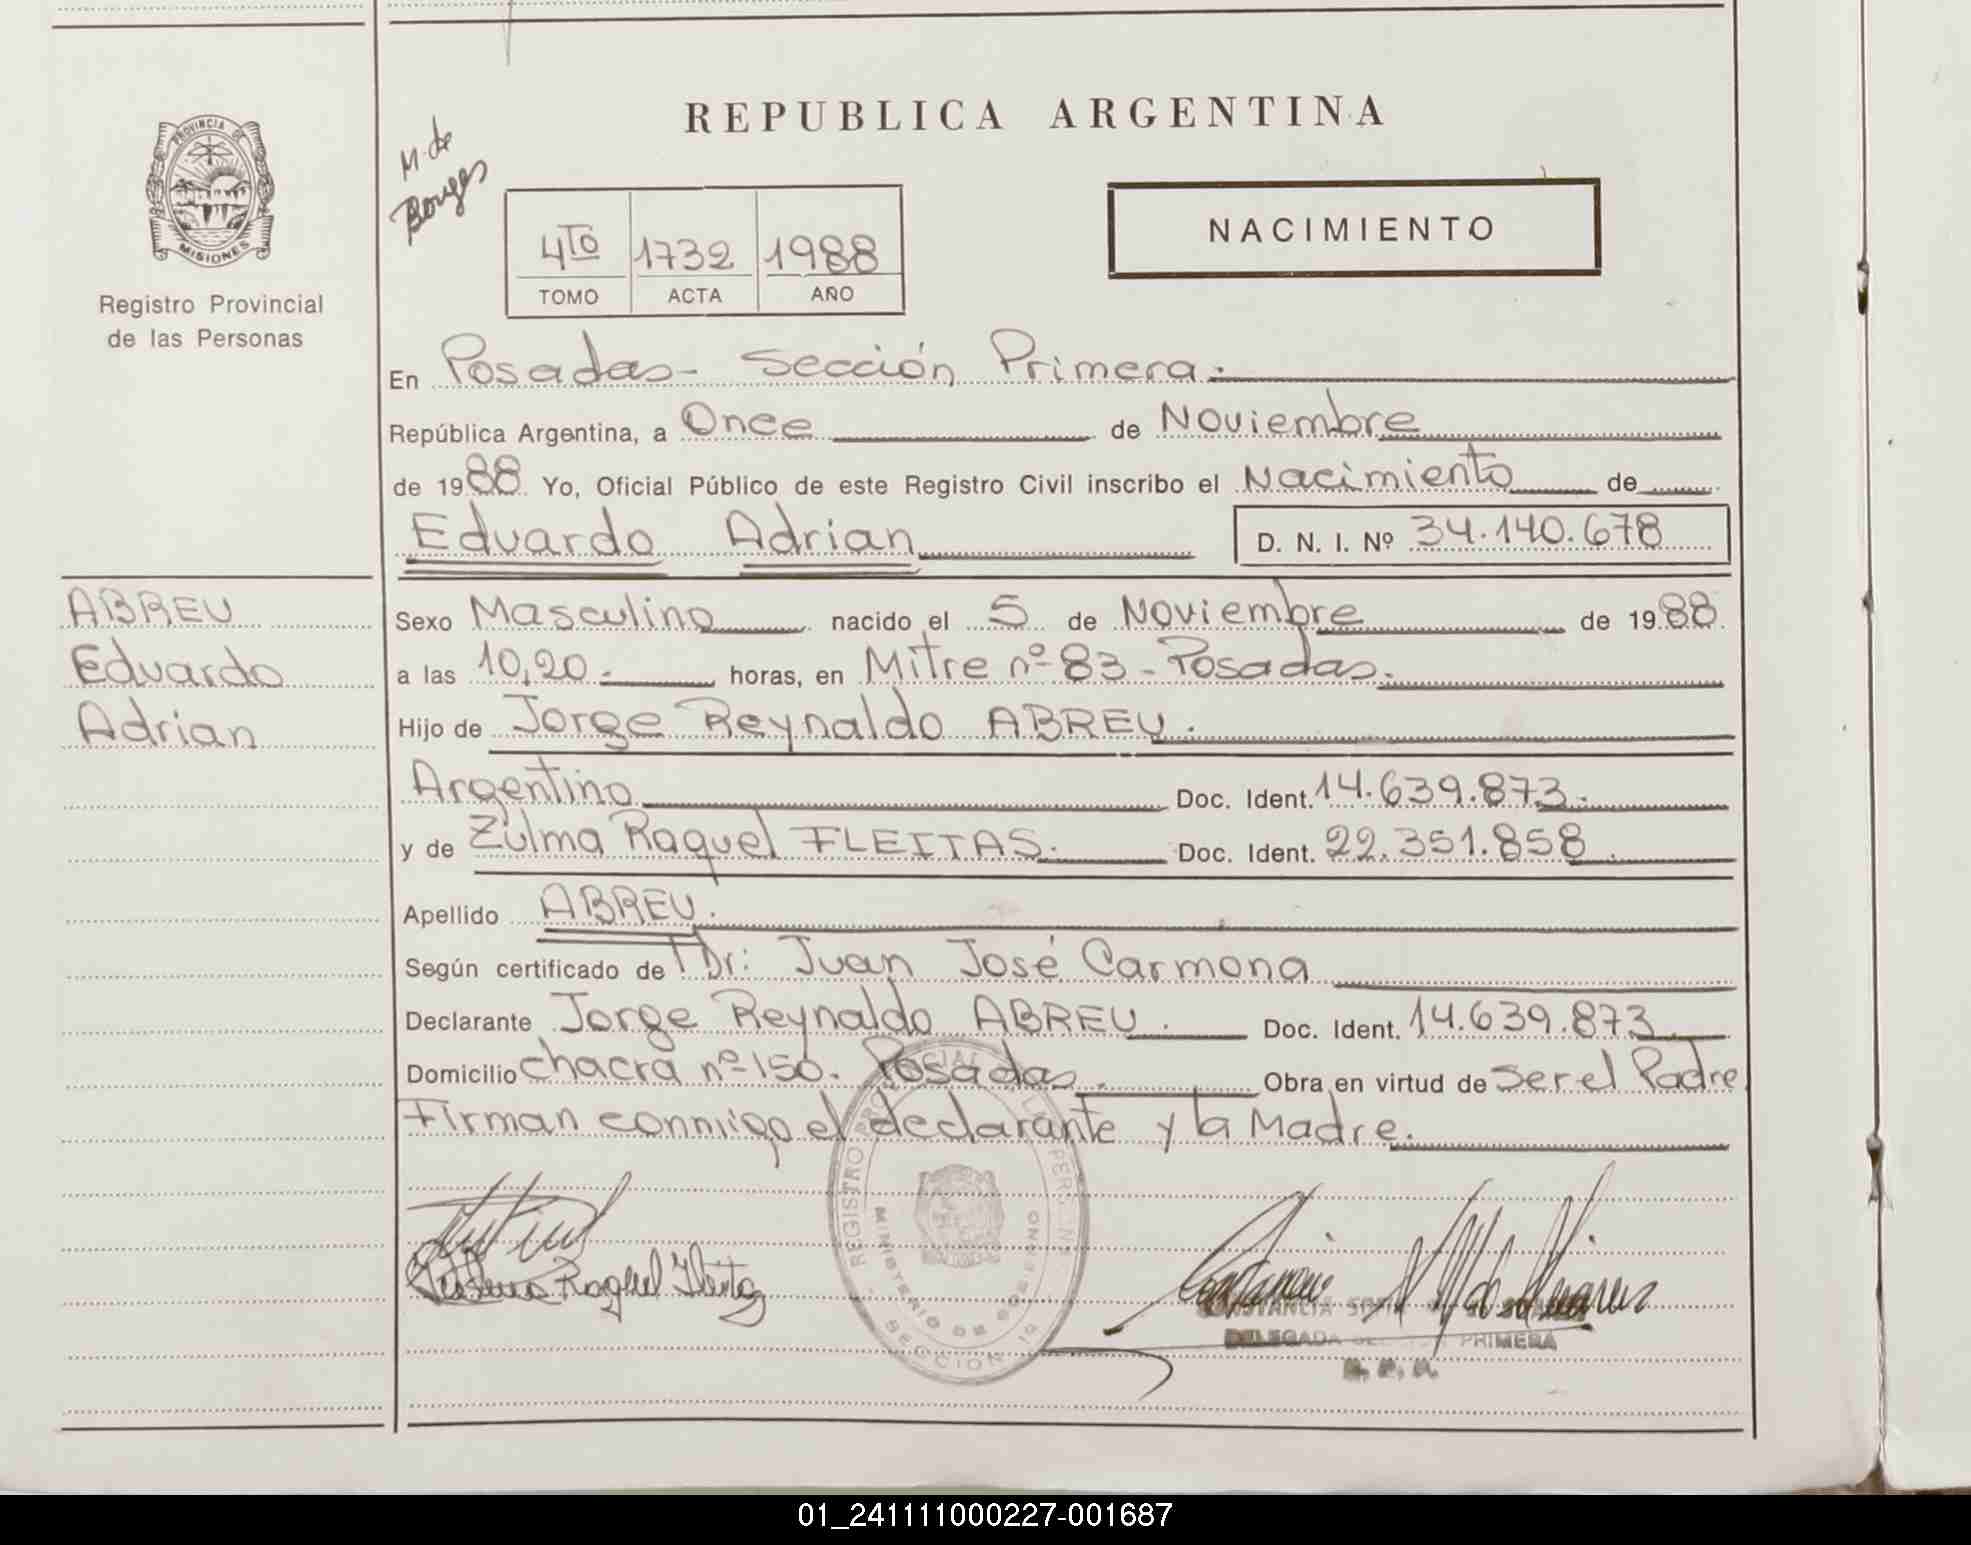 REPUBLICA ARGENTINA
PROVINCIA DE
MISIONES
Registro Provincial
de las Personas
M. de
Borges
4to 1732 1988
TOMO ACTA AÑO
NACIMIENTO
En Posadas - Sección Primera.
República Argentina, a Once de Noviembre
de 1988 Yo, Oficial Público de este Registro Civil inscribo el Nacimiento de
Eduardo Adrian D. N. I. Nº 34.140.678
ABREU
Eduardo
Adrian
Sexo Masculino nacido el 5 de Noviembre de 1988.
a las 10,20.- horas, en Mitre nº 83 - Posadas.
Hijo de Jorge Reynaldo ABREU.
Argentino Doc. Ident. 14.639.873.
y de Zulma Raquel FLEITAS. Doc. Ident. 22.351.858.
Apellido ABREU.
Según certificado de Dr: Juan José Carmona
Declarante Jorge Reynaldo ABREU. Doc. Ident. 14.639.873.
Domicilio chacra nº 150. Posadas. Obra en virtud de ser el Padre
Firman conmigo el declarante y la Madre.
Raquel
REGISTRO
MINISTERIO DE GOBIERNO
SECCION 1ª
CONSTANCIA
DELEGADA PRIMERA
R. P. P.
01_241111000227-001687